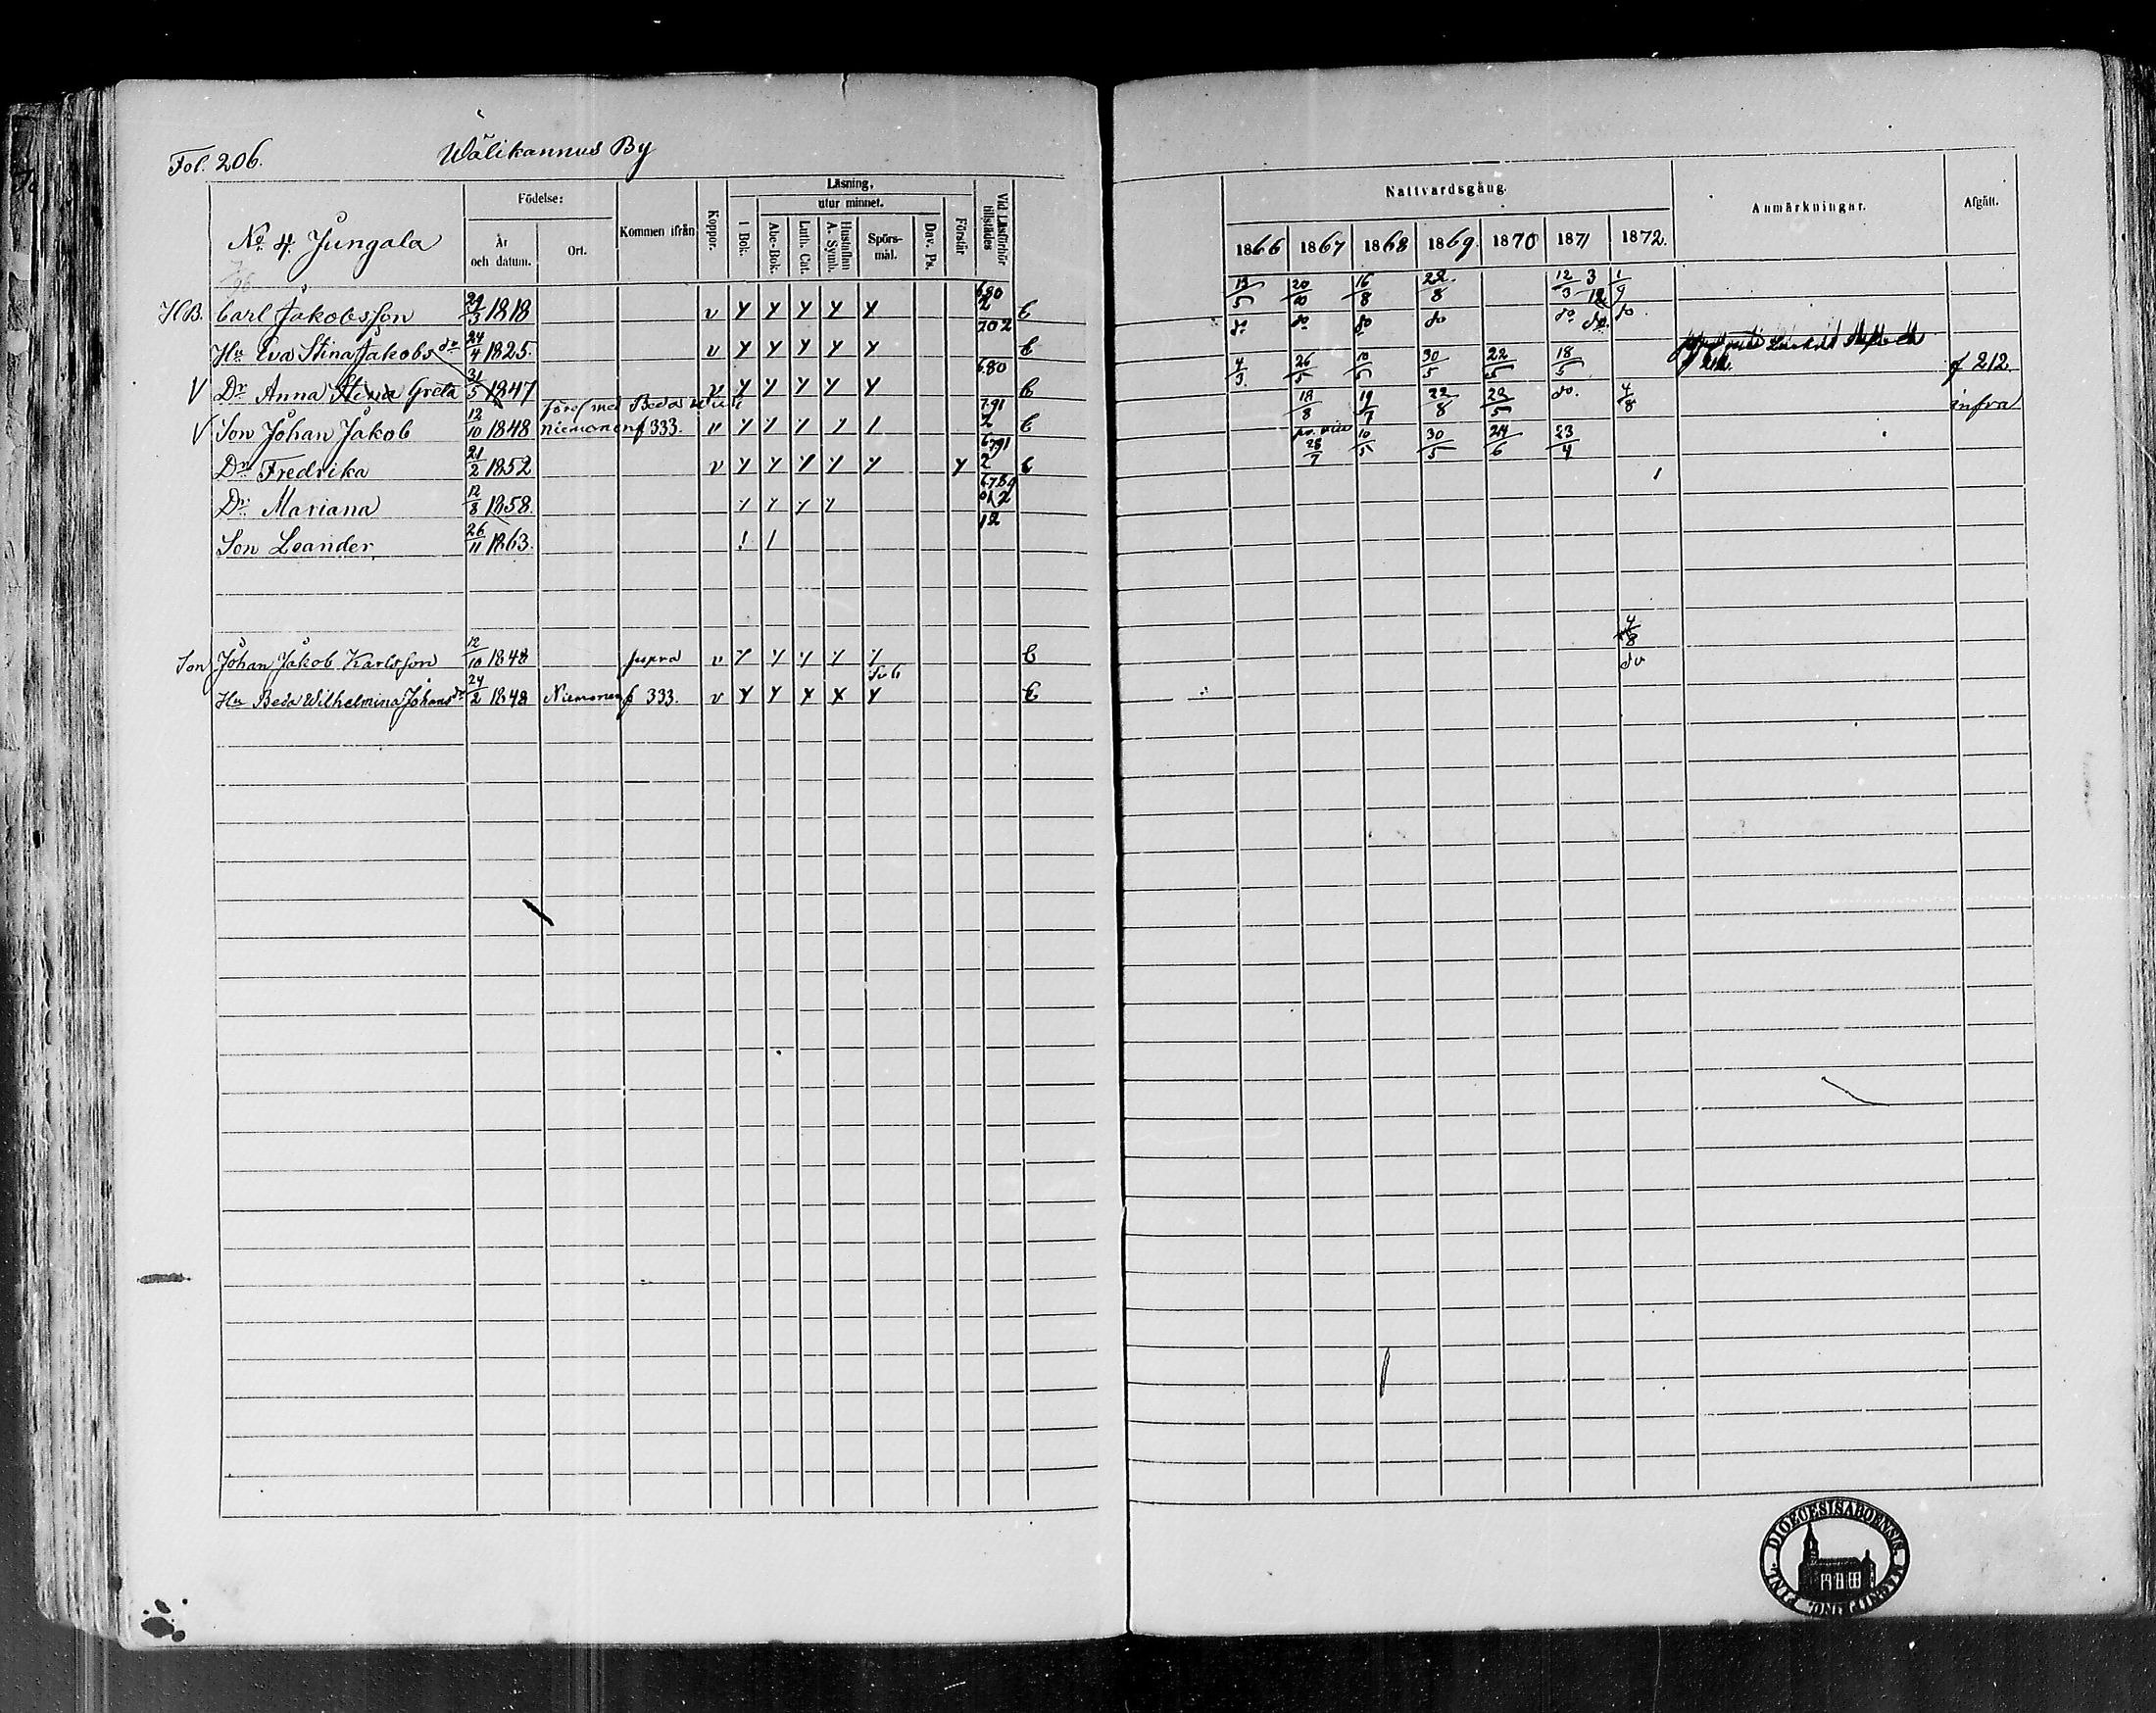 Fol. 206. Wälikannus By
No 4. Jungala
Födelse: År och datum. Ort. Kommen ifrån Koppor. Läsning, I Bok. utur minnet. Abc-Bok. Luth. Cat. Hustaflan A. Symb. Spörs-mål. Dav. Ps. Förstår Vid Läsförhör tillstädes
Nattvardsgång. 1866 1867 1868 1869. 1870 1871 1872. Anmärkningar. Afgått.
HB. Carl Jakobsson 3 1818 v 680 2 b 5 20 16/8 22/8 12/3 3 12 1/9
Hu Eva Stina Jakobsdr 24/4 1825. v 702 b do do do do do do. do
V Dr Anna Stina Greta 31/5 1847 v 680 b 4/3. 26/5 10/5 30/5 22/5 18/5 f 212.
V Son Johan Jakob 12/10 1848 Niemonen f 333. med Beda v 791 2 b 18/8 19/7 22/8 22/5 do. 4/8 infra
Dr Fredrika 21/2 1852 v 6791 2 b 28/7 10/5 30/5 24/6 23/4
Dr Mariana 12/8 1858.
Son Leander 26/11 1863. 12
Son Johan Jakob Karlsson 12/10 1848 supra v b 4/8
Hu Beda Wilhelmina Johansdr 24/2 1848 Niemonen f 333. v b do
DIOECESIS ABOENSIS. MAGNI PRINC. FINL.